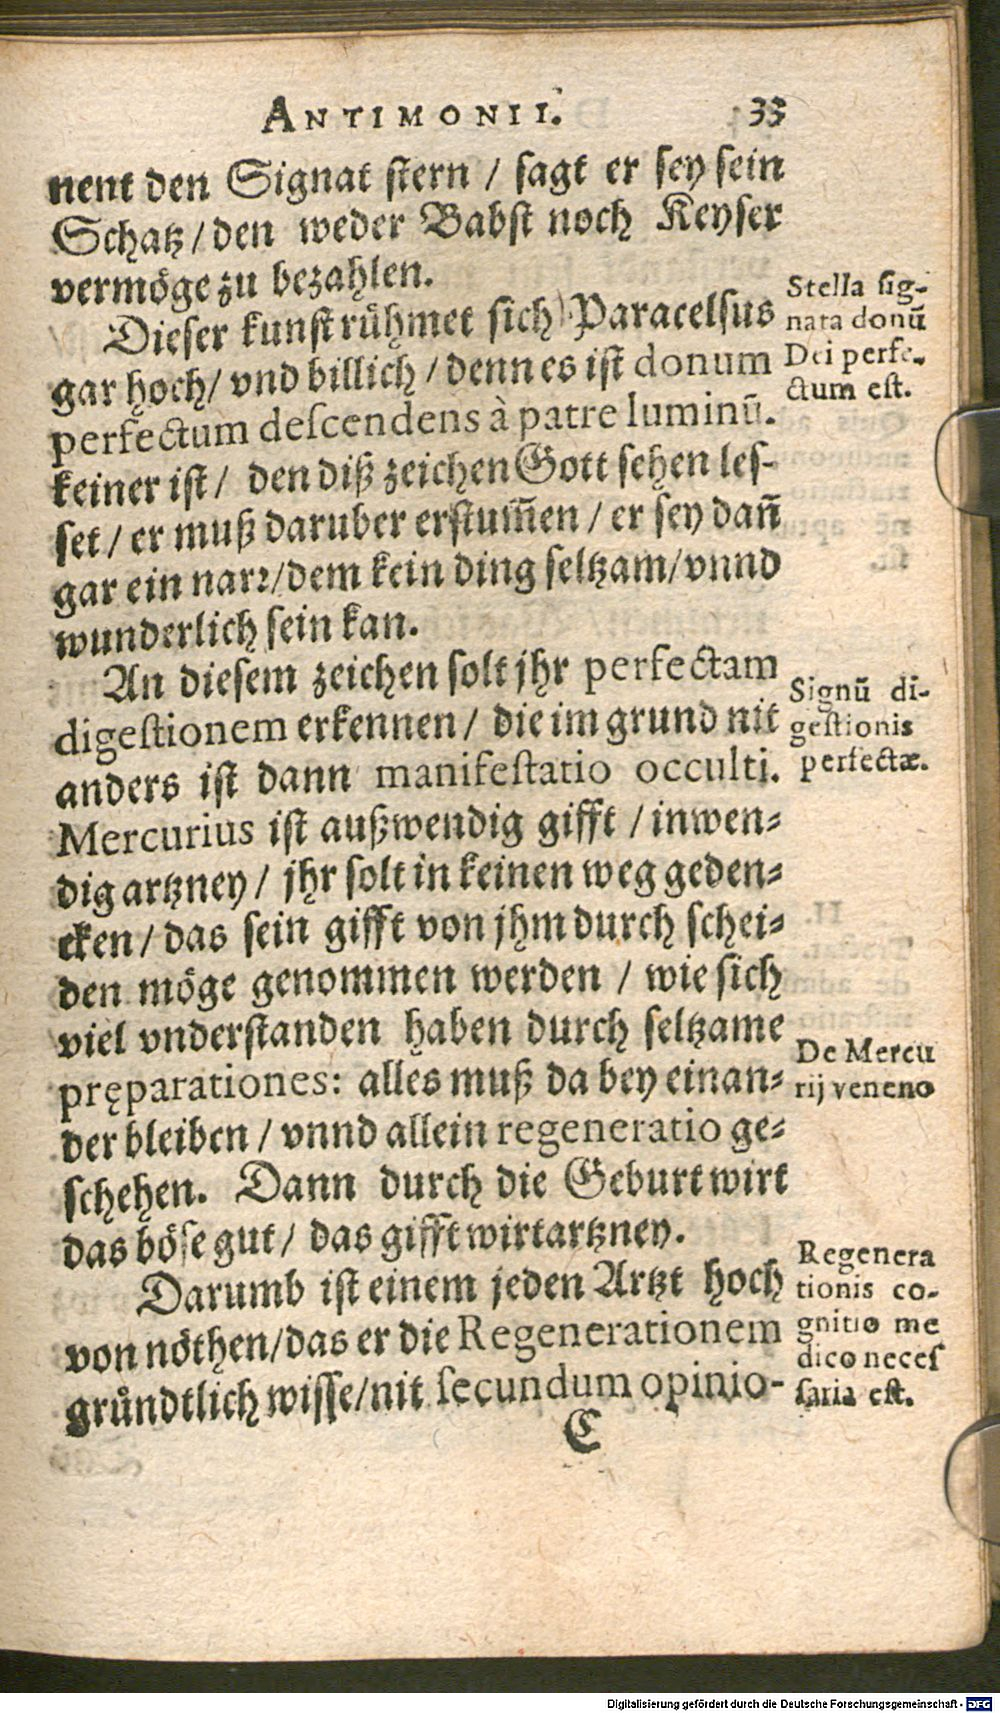 ANTIMONII. 33
nent den Signat stern / sagt er sey sein
Schatz / den weder Babst noch Keyser
vermöge zu bezahlen.
Dieser kunst rühmet sich Paracelsus
gar hoch / vnd billich / denn es ist donum
perfectum descendens à patre luminū.
keiner ist / den diß zeichen Gott sehen les-
set / er muß daruber erstum̄en / er sey dañ
gar ein narr / dem kein ding seltzam / vnnd
wunderlich sein kan.
An diesem zeichen solt jhr perfectam
digestionem erkennen / die im grund nit
anders ist dann manifestatio occulti.
Mercurius ist außwendig gifft / inwen-
dig artzney / jhr solt in keinen weg geden-
cken / das sein gifft von jhm durch schei-
den möge genommen werden / wie sich
viel vnderstanden haben durch seltzame
pręparationes: alles muß da bey einan-
der bleiben / vnnd allein regeneratio ge-
schehen. Dann durch die Geburt wirt
das böse gut / das gifft wirt artzney.
Darumb ist einem jeden Artzt hoch
von nöthen / das er die Regenerationem
gründtlich wisse / nit secundum opinio-
C
Stella sig-
nata donū
Dei perfe-
ctum est.
Signū di-
gestionis
perfectæ.
De Mercu
rij veneno
Regenera
tionis co-
gnitio me
dico neces
saria est.
Digitalisierung gefördert durch die Deutsche Forschungsgemeinschaft - DFG